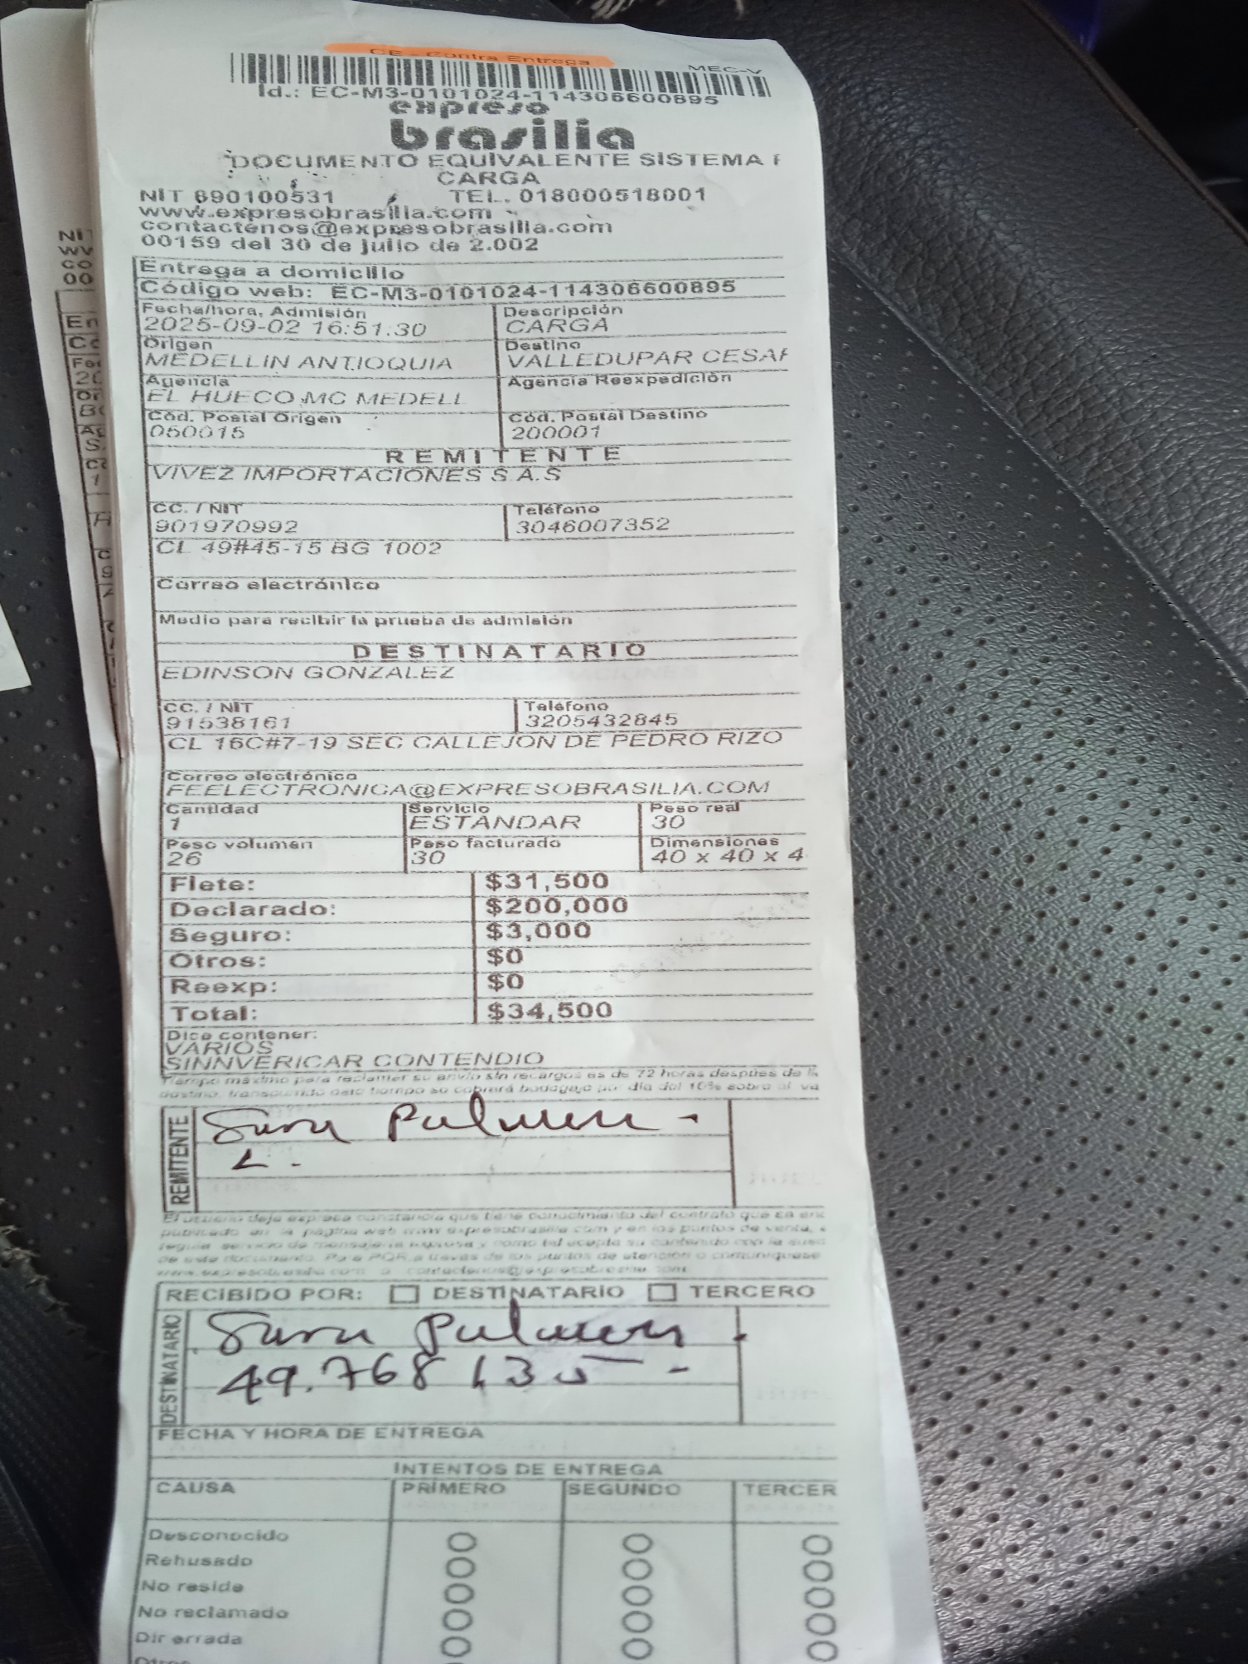 CE - Contra Entrega
MEC-V
Id.: EC-M3-0101024-114306600895
expreso
brasilia
DOCUMENTO EQUIVALENTE SISTEMA
CARGA
NIT 890100531 TEL. 018000518001
www.expresobrasilia.com
contactenos@expresobrasilia.com
00159 del 30 de julio de 2.002
Entrega a domicilio
Código web: EC-M3-0101024-114306600895
Fecha/hora, Admisión Descripción
2025-09-02 16:51:30 CARGA
Origen Destino
MEDELLIN ANTIOQUIA VALLEDUPAR CESAR
Agencia Agencia Reexpedición
EL HUECO MC MEDELL
Cód. Postal Origen Cód. Postal Destino
050015 200001
REMITENTE
VIVEZ IMPORTACIONES S.A.S
CC. / NIT Teléfono
901970992 3046007352
CL 49#45-15 BG 1002
Correo electrónico
Medio para recibir la prueba de admisión
DESTINATARIO
EDINSON GONZALEZ
CC. / NIT Teléfono
91538161 3205432845
CL 16C#7-19 SEC CALLEJON DE PEDRO RIZO
Correo electrónico
FEELECTRONICA@EXPRESOBRASILIA.COM
Cantidad Servicio Peso real
1 ESTANDAR 30
Peso volumen Peso facturado Dimensiones
26 30 40 x 40 x 4
Flete: $31,500
Declarado: $200,000
Seguro: $3,000
Otros: $0
Reexp: $0
Total: $34,500
Dice contener:
VARIOS
SINNVERICAR CONTENDIO
Tiempo máximo para reclamar su envío sin recargos es de 72 horas después de
destino, transcurrido este tiempo se cobrará bodegaje por día del 10% sobre el va
REMITENTE
El usuario deja expresa constancia que tiene conocimiento del contrato que se
publicado en la página web www.expresobrasilia.com y en los puntos de venta,
regula servicio de mensajería expresa y como tal acepta su contenido con la
de este documento. Para PQR a través de los puntos de atención o comuníquese
www.expresobrasilia.com o contactenos@expresobrasilia.com
RECIBIDO POR: DESTINATARIO TERCERO
DESTINATARIO
49.768 135 -
FECHA Y HORA DE ENTREGA
INTENTOS DE ENTREGA
CAUSA PRIMERO SEGUNDO TERCER
Desconocido
Rehusado
No reside
No reclamado
Dir errada
Otros